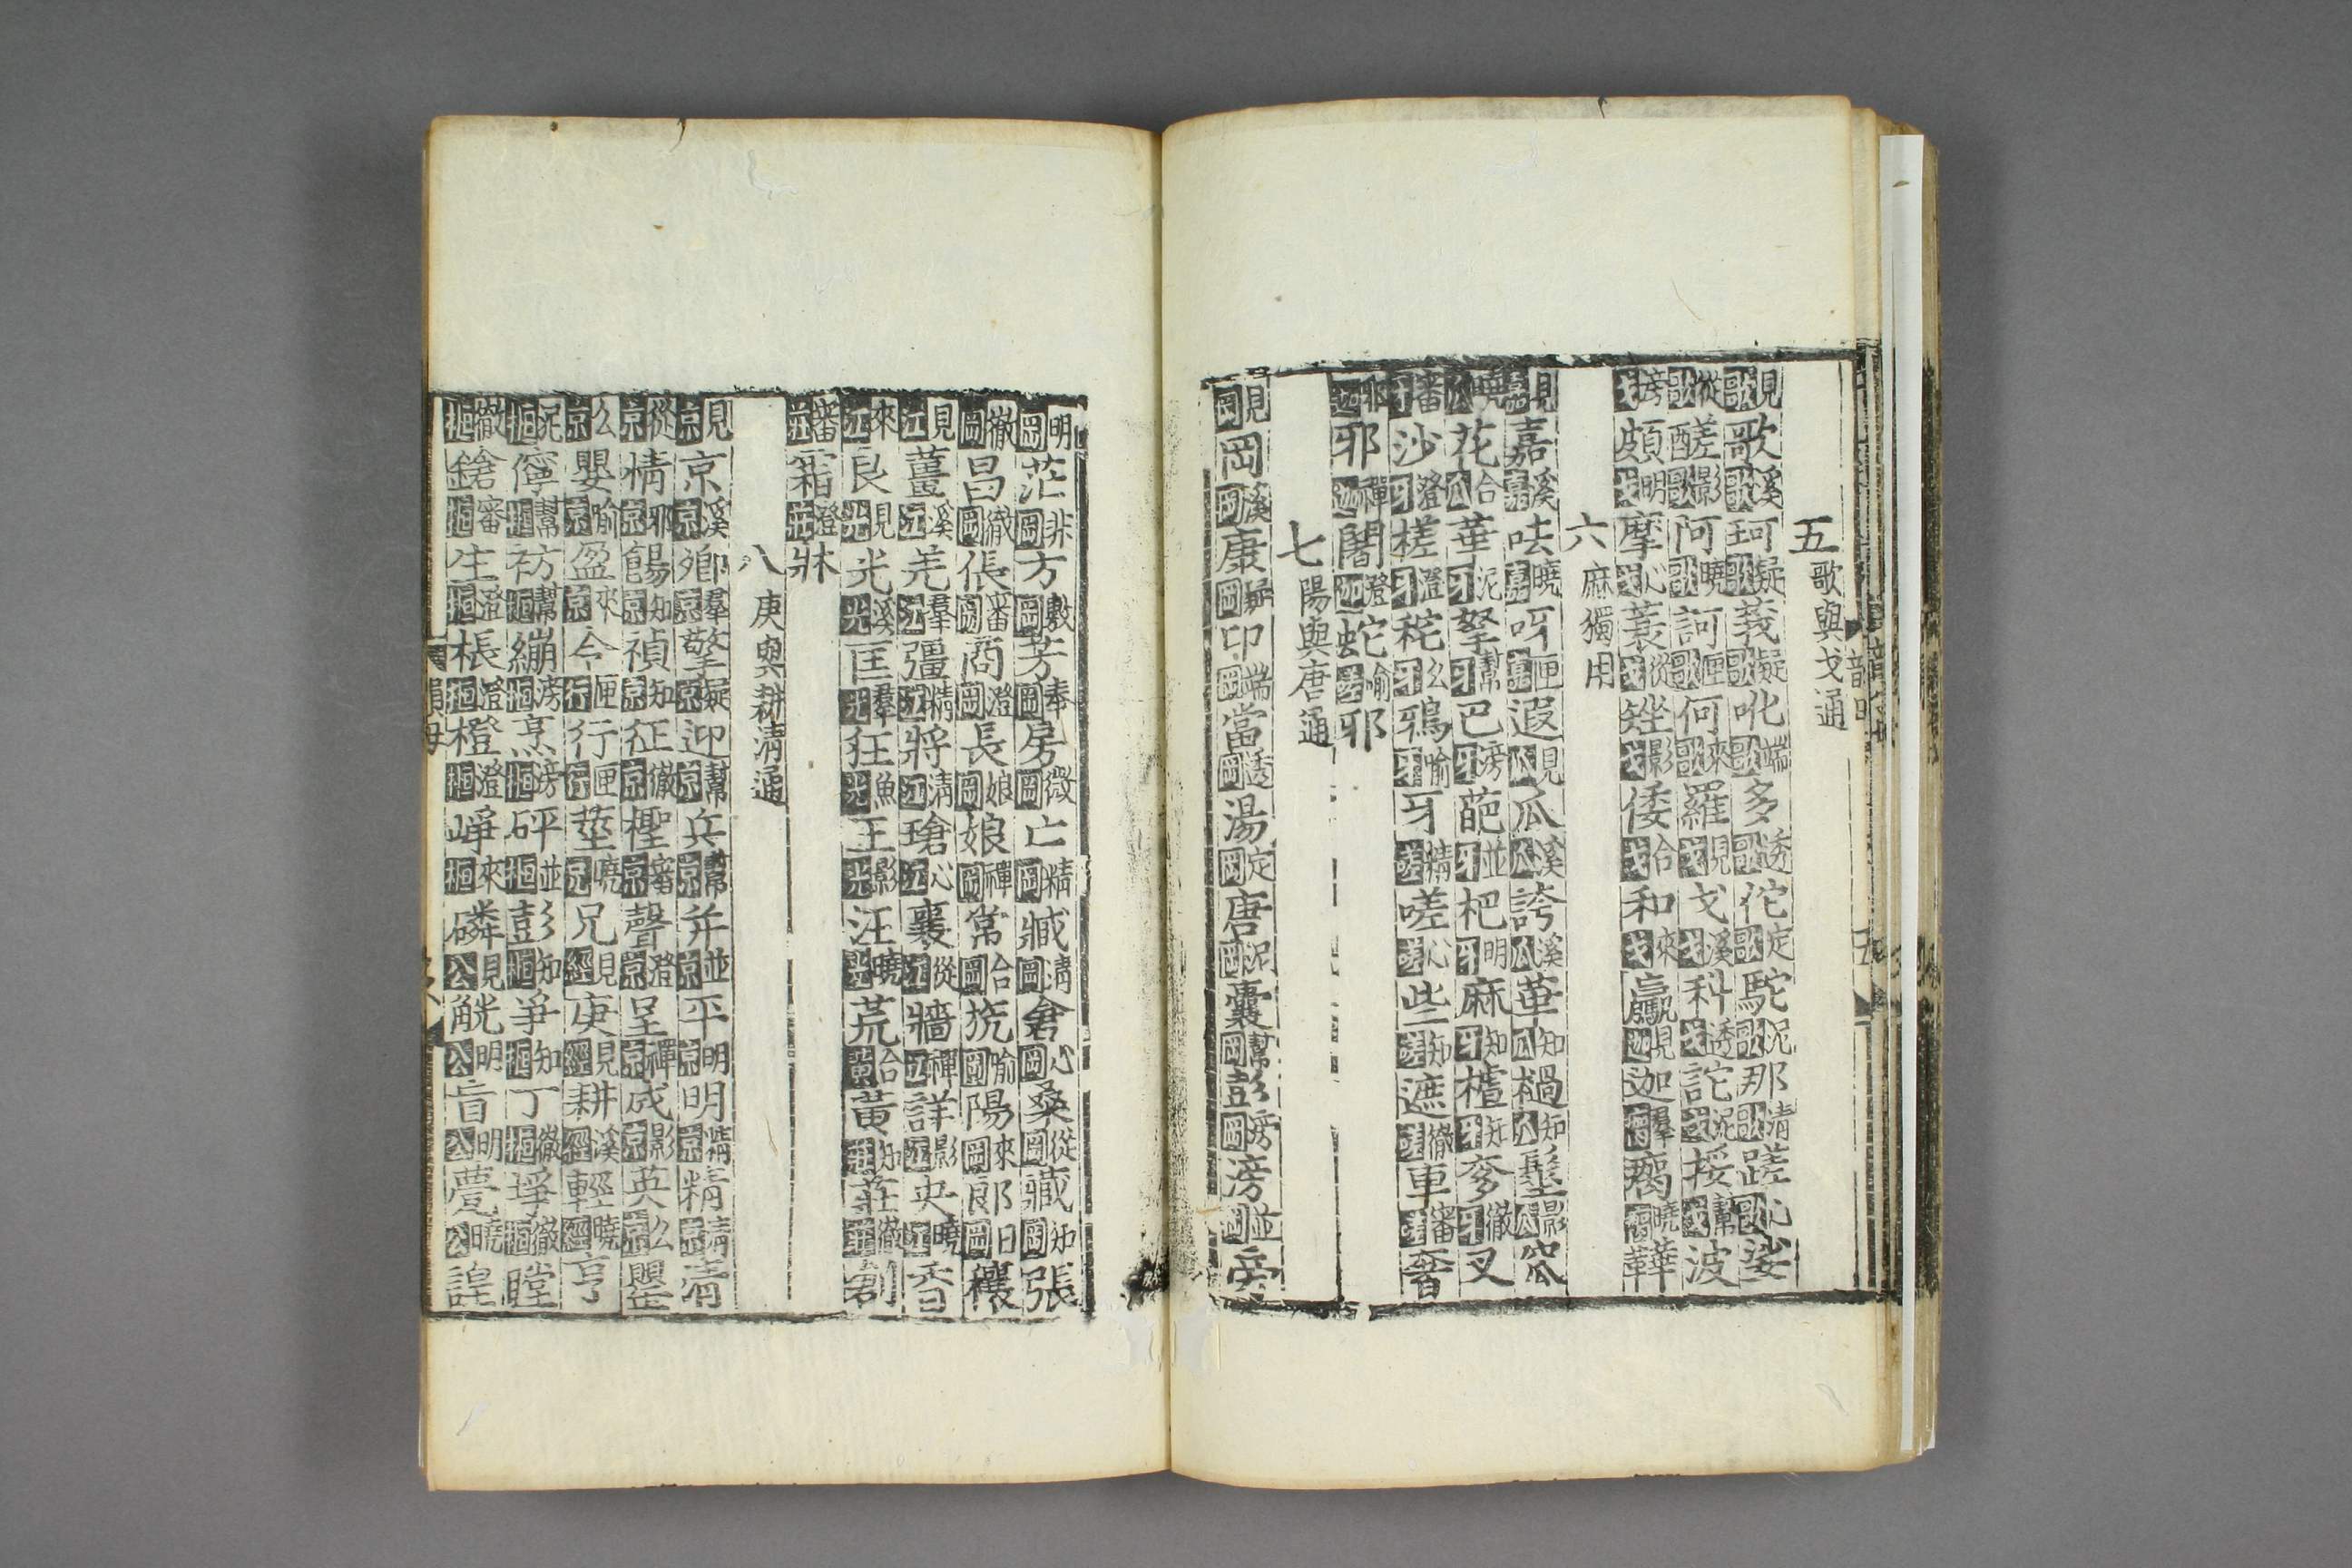 五 歌與戈通
見歌歌溪歌珂疑歌莪疑歌吪端歌多透歌佗定歌駝泥歌那清歌蹉心歌娑
從歌醝影歌阿曉歌訶匣歌何來歌羅見戈戈溪戈科透戈詑泥戈捼幫戈波
滂戈頗明戈摩心戈蓑從戈矬影戈倭合戈和來戈臝見迦迦羣瘸曉鞾
六 麻獨用
見嘉嘉溪嘉呿曉嘉呀匣嘉遐見瓜瓜溪瓜誇溪瓜華知瓜檛知瓜髽影瓜窊
曉瓜花合瓜華泥牙拏幫牙巴滂牙葩並牙杷明牙麻知牙樝知牙奓徹牙叉
審牙沙澄牙槎澄牙秅么牙鴉喻牙牙精嗟嗟心嗟些知嗟遮徹嗟車審嗟奢
邪迦邪禪迦闍澄迦蛇喻嗟邪
七 陽與唐通
見岡岡溪岡康疑岡卬端岡當透岡湯定岡唐泥岡囊幫岡彭滂岡滂並岡旁
明岡茫非岡方敷岡芳奉岡房微岡亡精岡臧清岡倉心岡桑從岡藏知岡張
徹岡昌徹岡倀審岡商澄岡長娘岡娘禪岡常合岡喻岡陽來岡郎日岡穰
見江薑溪江羌羣江彊精江將清江瑲心江襄從江牆禪江詳影江央曉江香
來江良見光光溪光匡羣光狂魚光王影光汪曉光荒合黃黃知莊莊徹莊創
審莊霜澄莊牀
八 庚與耕清通
見京京溪京卿羣京擎疑京迎幫京兵幫京并並京平明京明精京精清京清
從京情邪京餳知京禎知京征徹京檉審京聲澄京呈禪京成影京英么京罌
么京嬰喻京盈來京令匣行行匣行莖曉京兄見經庚見經耕溪經輕曉經亨
泥揯儜幫揯祊幫揯繃滂揯烹滂揯砰並揯彭知揯爭知揯丁徹揯琤徹揯瞠
徹揯鎗審揯生澄揯棖澄揯橙澄揯崢來揯磷見公觥明公盲明公甍曉公諻